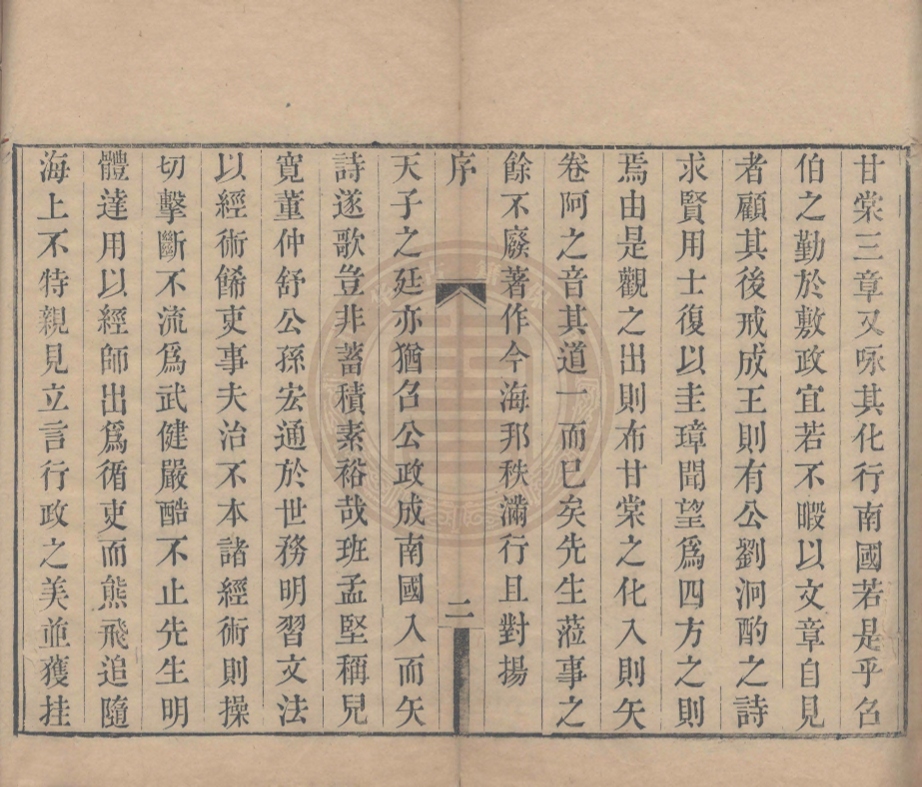 甘棠三章又咏其化行南國若是乎召
伯之勤於敷政宜若不暇以文章自見
者顧其後戒成王則有公劉泂酌之詩
求賢用士復以圭璋聞望爲四方之則
焉由是觀之出則布甘棠之化入則矢
卷阿之音其道一而已矣先生蒞事之
餘不廢著作今海邦秩滿行且對揚
序
二
天子之廷亦猶召公政成南國入而矢
詩遂歌豈非蓄積素裕哉班孟堅稱兒
寬董仲舒公孫宏通於世務明習文法
以經術餙吏事夫治不本諸經術則操
切擊斷不流爲武健嚴酷不止先生明
體達用以經師出爲循吏而熊飛追隨
海上不特親見立言行政之美並獲挂